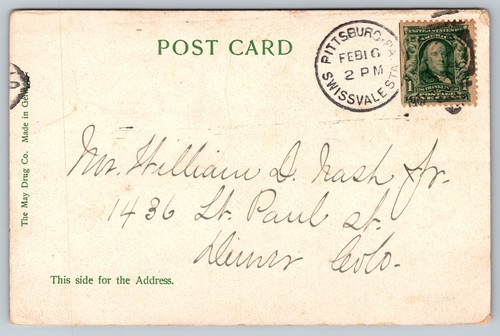 POST CARD
PITTSBURG, PA.
FEB 16
2 PM
SWISSVALE STA.
1
The May Drug Co. Made in Ge
Mr. William D. Nash, Jr.
1436 St. Paul st.
Denver Colo.
This side for the Address.